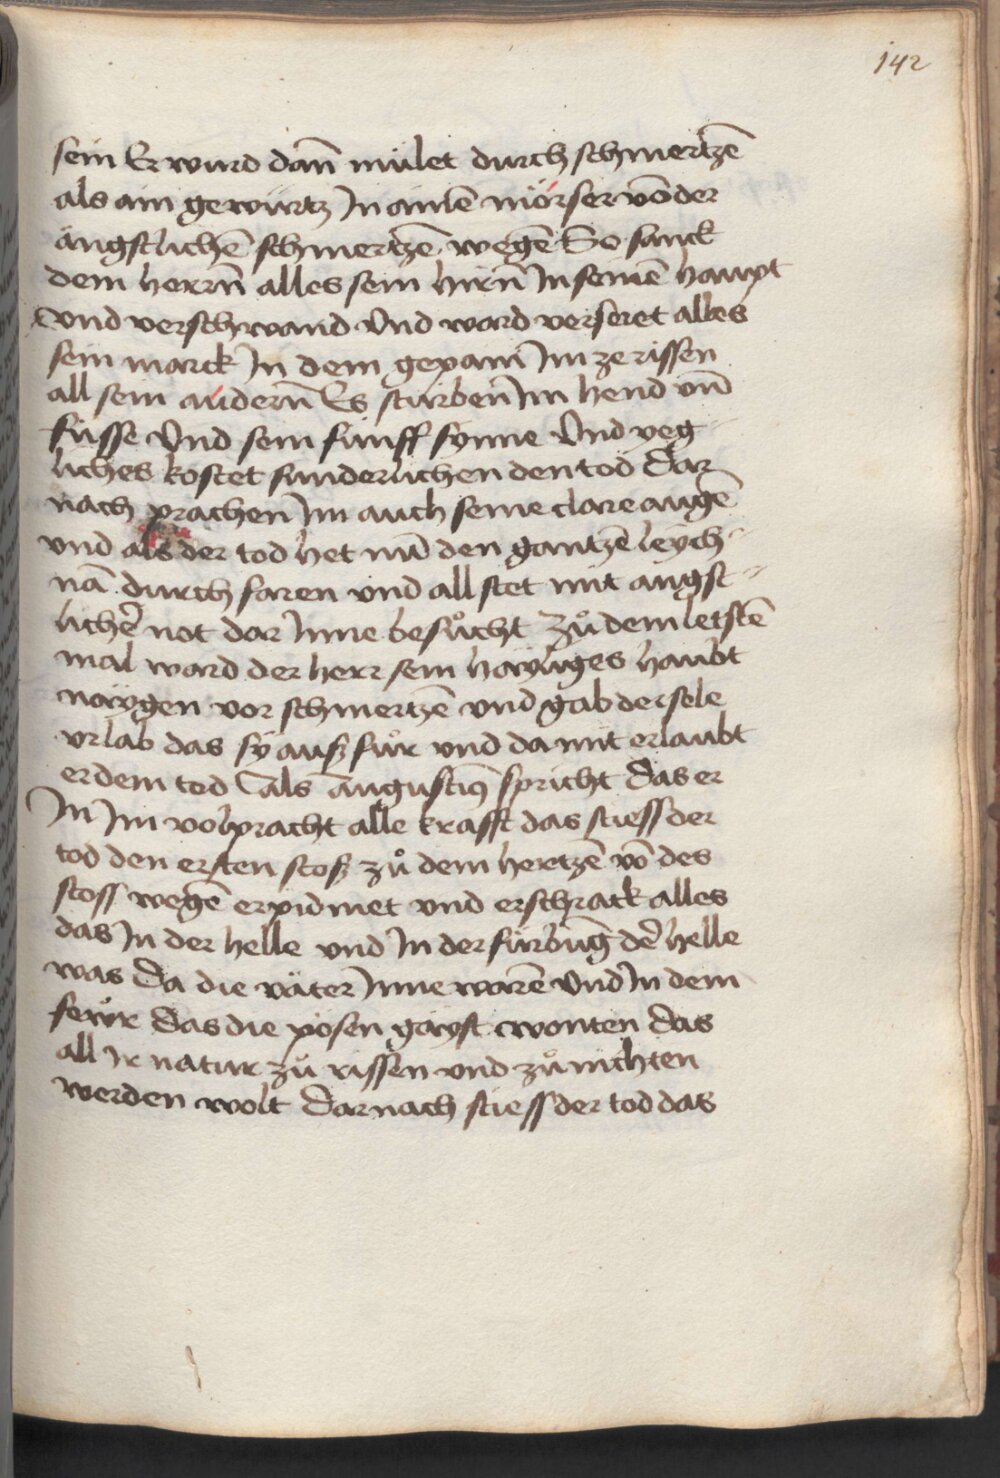 142
sein Er wurd dañ mület durch schmertzē
als ain gewürtz In ainē mörser vō der
ängstlichē schmertzē wegē So sanck
dem herrñ alles sein hirñ In seinē haupt
vnd verschwand Vnd ward verseret alles
sein marck In dem gepain Im zerissen
all sein auderñ Es sturbeñ Im hend vñ
füsse Vnd sein fünff synne Vnd yeg
liches kostet sunderlichen den tod Dar
nach prachen Im auch seine clare augē
vnd als der tod het nū den gantzē leych
nā durch faren vnd all stet mit angst
lichē not dar Inne besůcht Zů dem letstē
mal ward der herr sein hayliges haubt
naygen vor schmertzē vnd gab der sele
vrlab das sy ausz fůr vnd da mit erlaubt
er dem tod Als Augustiꝰ spricht Das er
In Im volpracht alle krafft das stiess der
tod den ersten stosz zů dem hertzē vō des
stoss wegē erpidmet vnd erschrack alles
das In der helle vnd In der fürbūg dē helle
was Da die väter Inne warē Vnd In dem
fewr Das die pösen gayst wonten das
all Ir natur zů rissen vnd zů nichten
werden wolt Darnach stiess der tod das